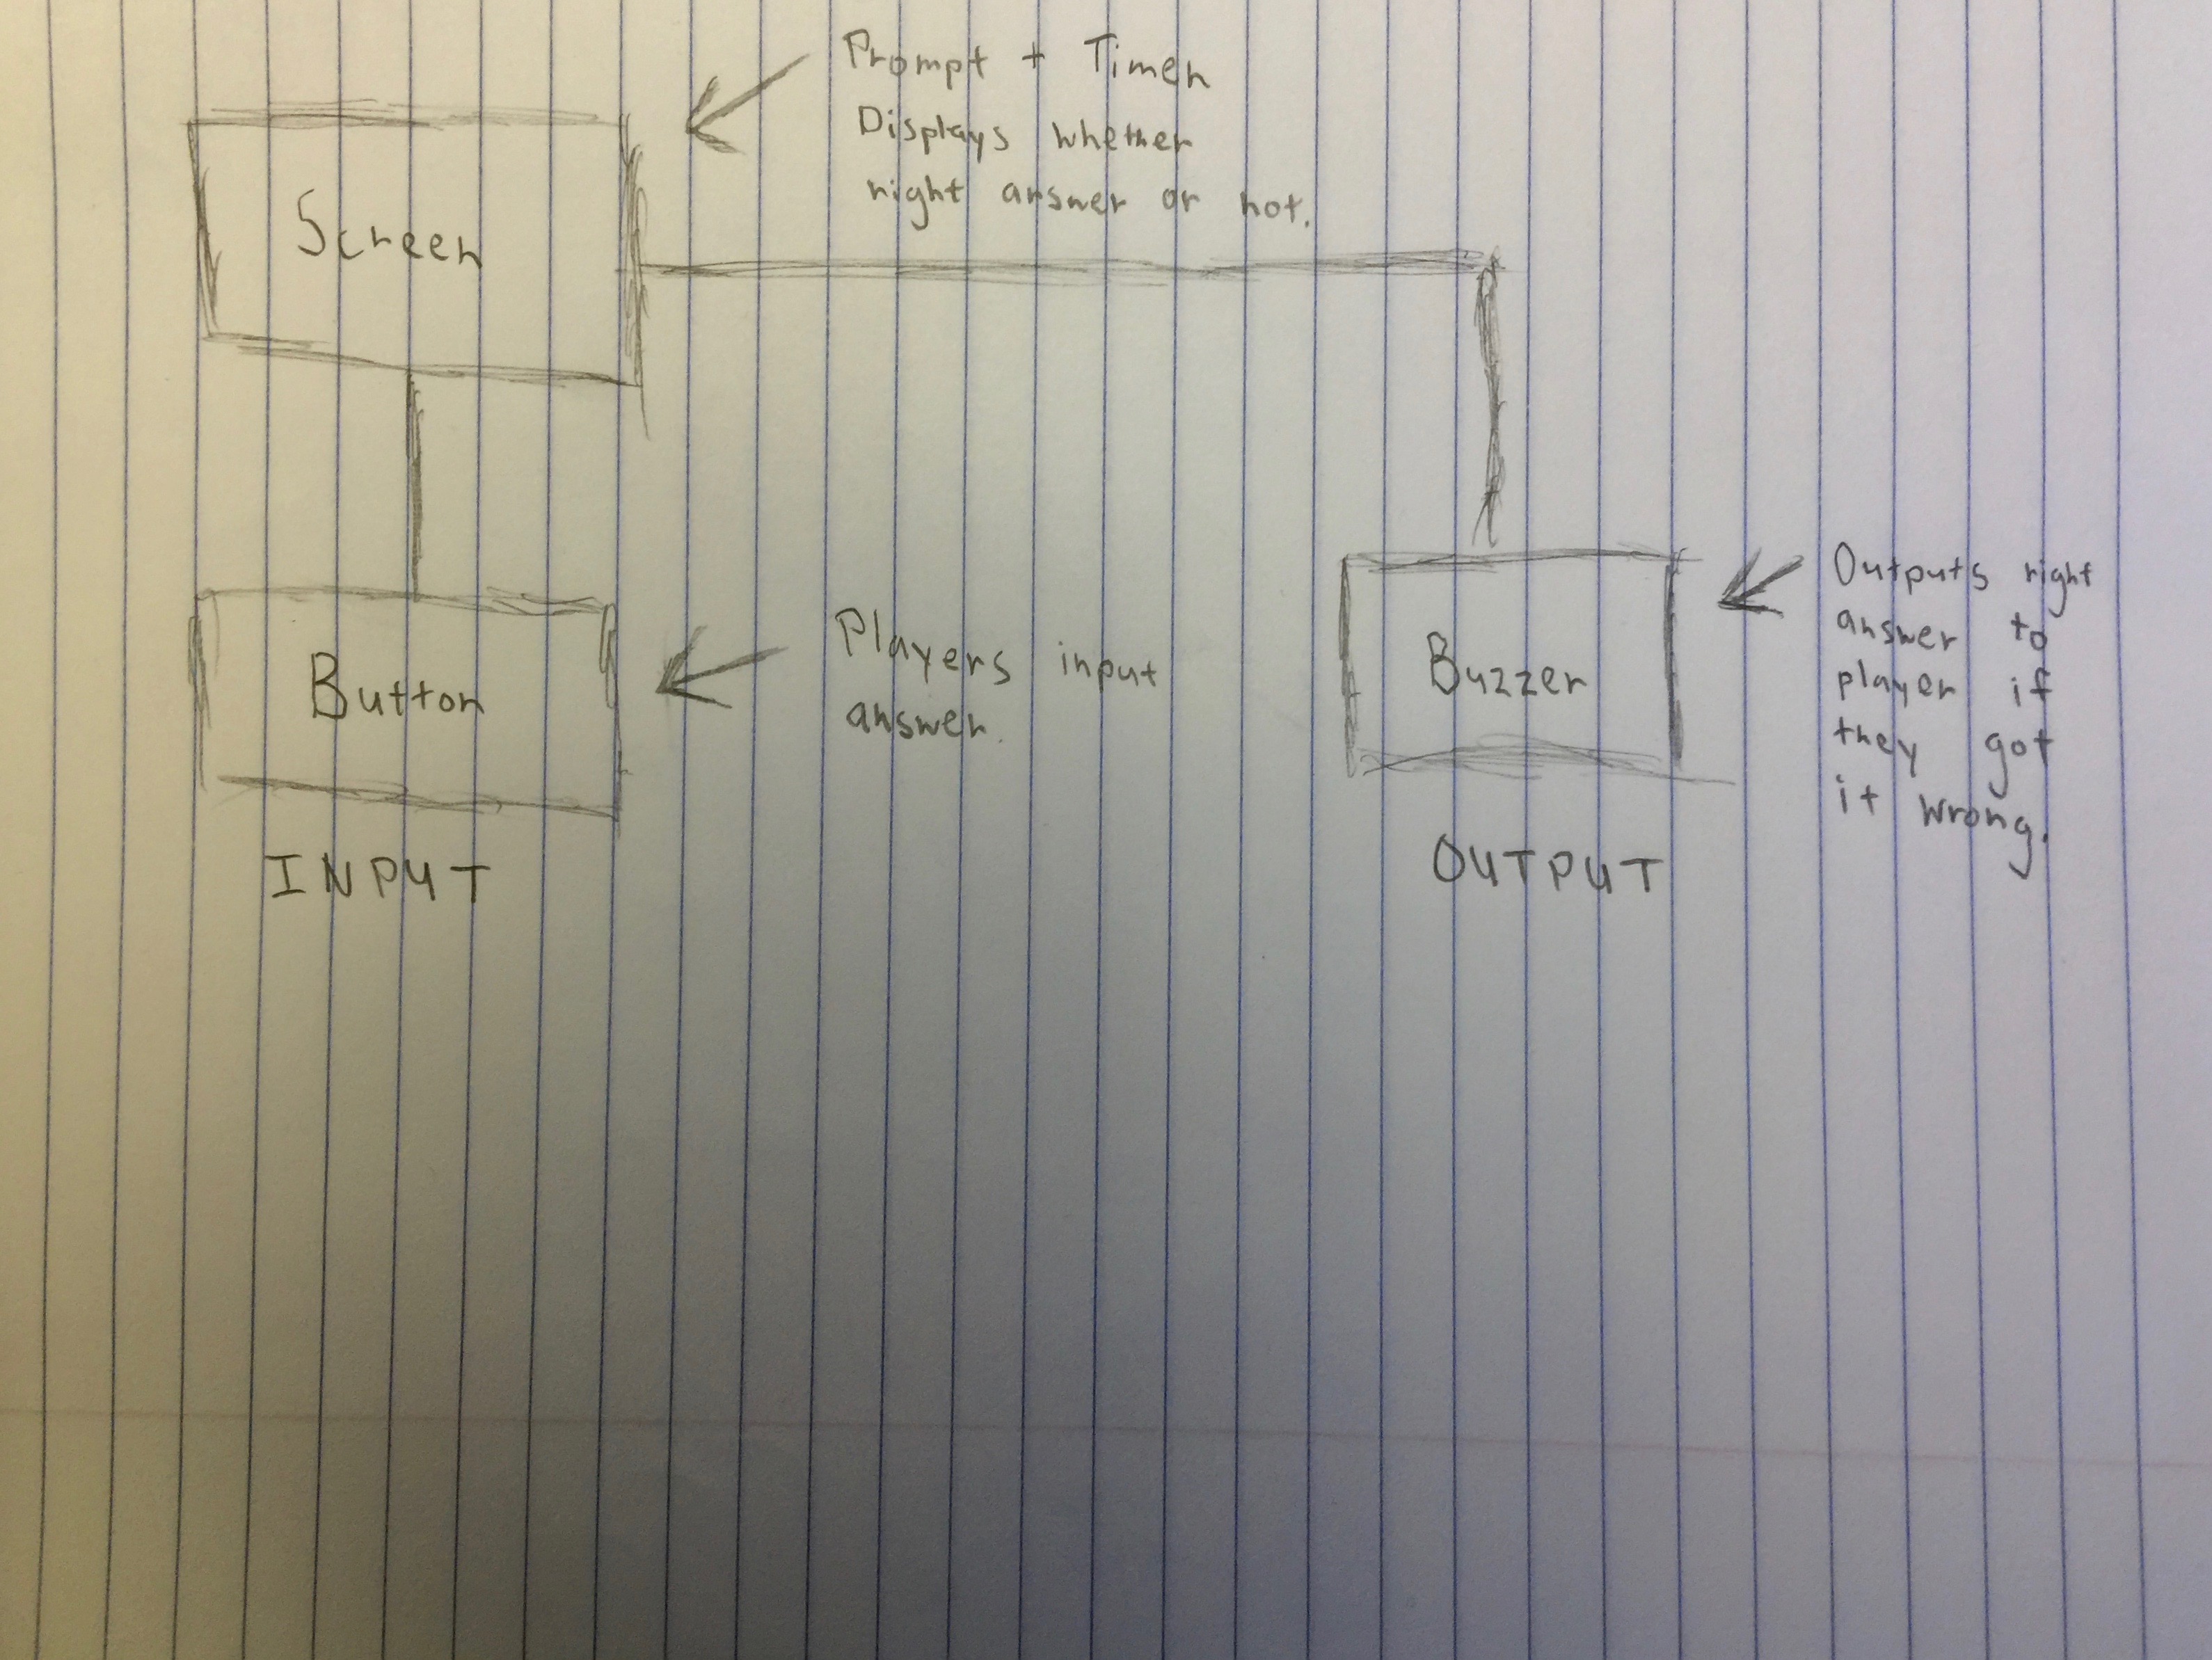 Prompt + Timer
Displays whether
right answer or not.
Screen
Button
Players input
answer.
INPUT
Buzzer
OUTPUT
Outputs right
answer to
player if
they got
it wrong.